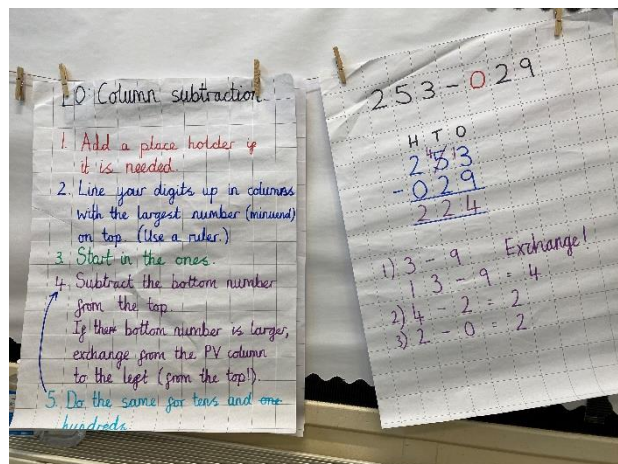 LO: Column subtraction
1. Add a place holder if
it is needed.
2. Line your digits up in columns
with the largest number (minuend)
on top. (Use a ruler.)
3. Start in the ones.
4. Subtract the bottom number
from the top.
If the bottom number is larger,
exchange from the PV column
to the left (from the top!).
5. Do the same for tens and one
hundreds.
253 - 029
H T O
2 4 5 1 3
- 0 2 9
2 2 4
1) 3 - 9 Exchange!
1 3 - 9 = 4
2) 4 - 2 = 2
3) 2 - 0 = 2